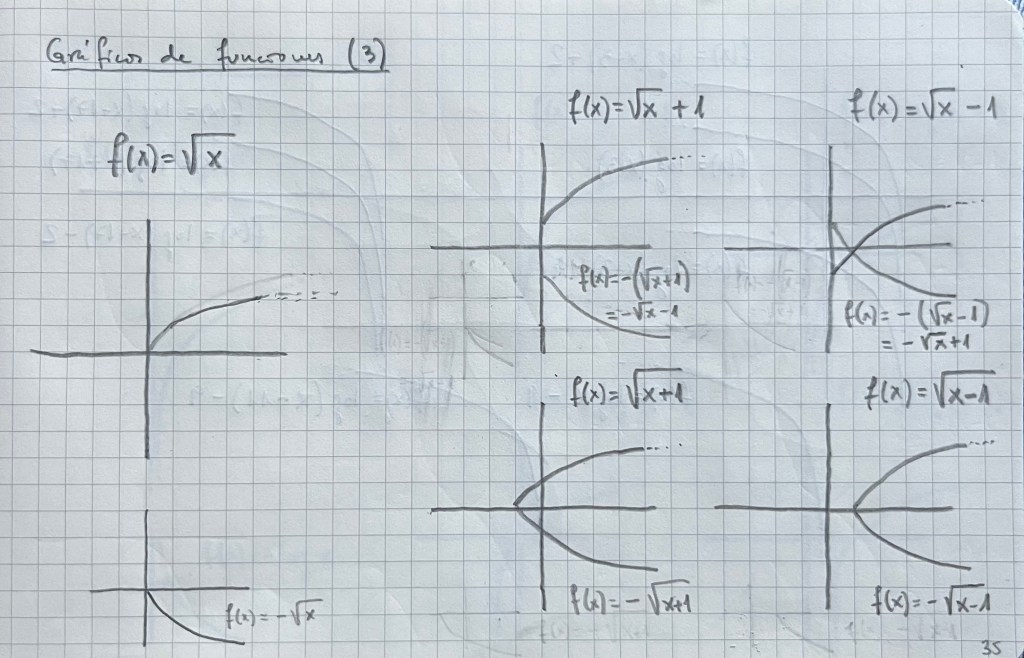 Gráficos de funciones (3)
f(x)=√x
f(x)=-√x
f(x)=√x +1
f(x)=-(√x+1)
=-√x-1
f(x)=√x -1
f(x)=-(√x-1)
=-√x+1
f(x)=√(x+1)
f(x)=-√(x+1)
f(x)=√(x-1)
f(x)=-√(x-1)
35